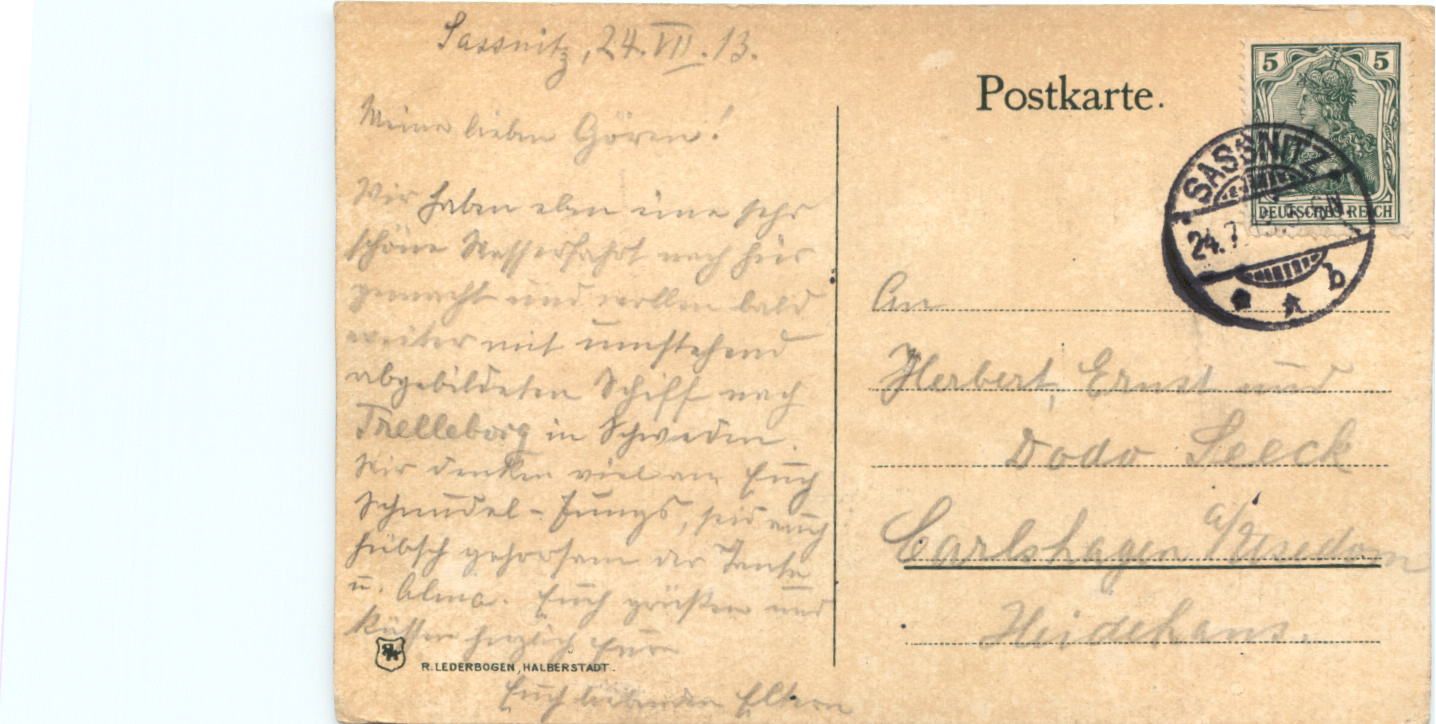 Sassnitz, 24.VII.13.
Meine lieben Gören!
Wir haben eben eine sehr
schöne Wasserfahrt nach hier
gemacht und wollen bald
weiter mit umstehend
abgebildeten Schiff nach
Trelleborg in Schweden.
Wir denken viel an Euch
Schnudel-Jungs, seid auch
hübsch gehorsam der Tante
u. Alma. Euch grüßen und
küssen herzlich Eure
Euch liebenden Eltern
R. LEDERBOGEN, HALBERSTADT.
Postkarte.
5 5
DEUTSCHES REICH
SASSNITZ
24.7
b
An
Herbert, Ernst und
Dodo Seeck
Carlshagen a/Usedom